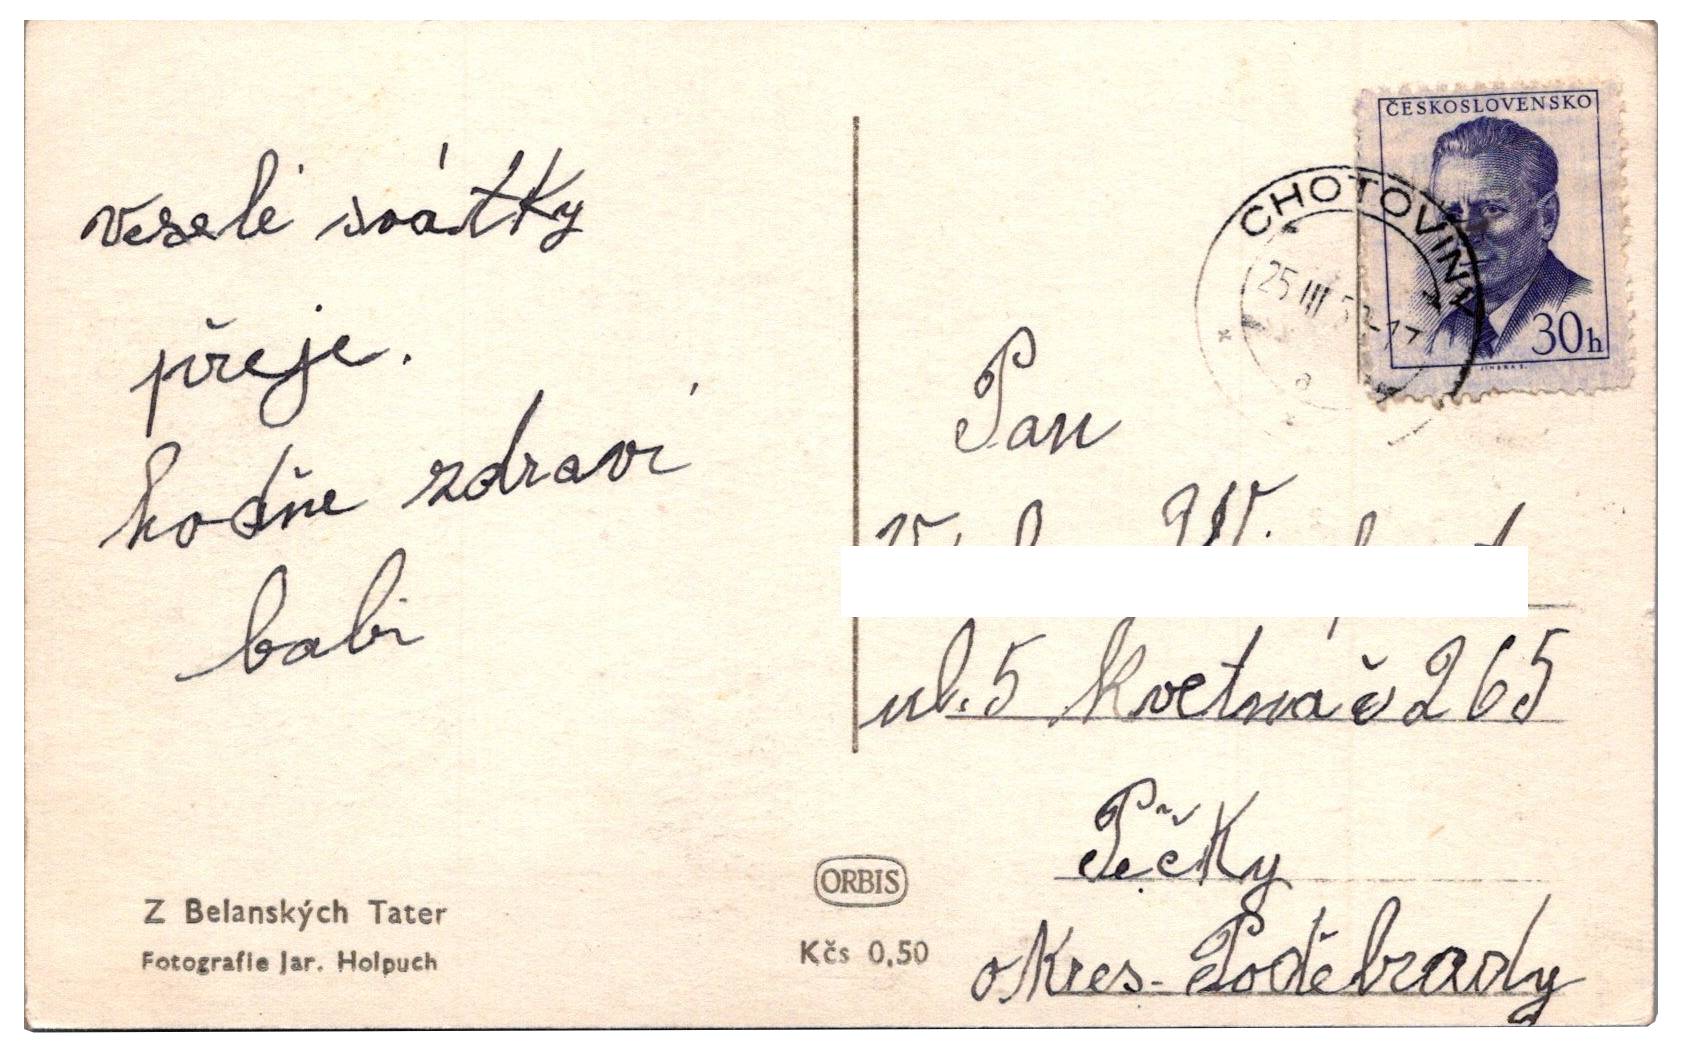 veselé svátky
přeje.
hodně zdraví
babi
Z Belanských Tater
Fotografie Jar. Holpuch
ORBIS
Kčs 0,50
ČESKOSLOVENSKO
30h
CHOTOVINY
25 III
Pan
ul. 5 Května č 265
Pečky
okres - Poděbrady